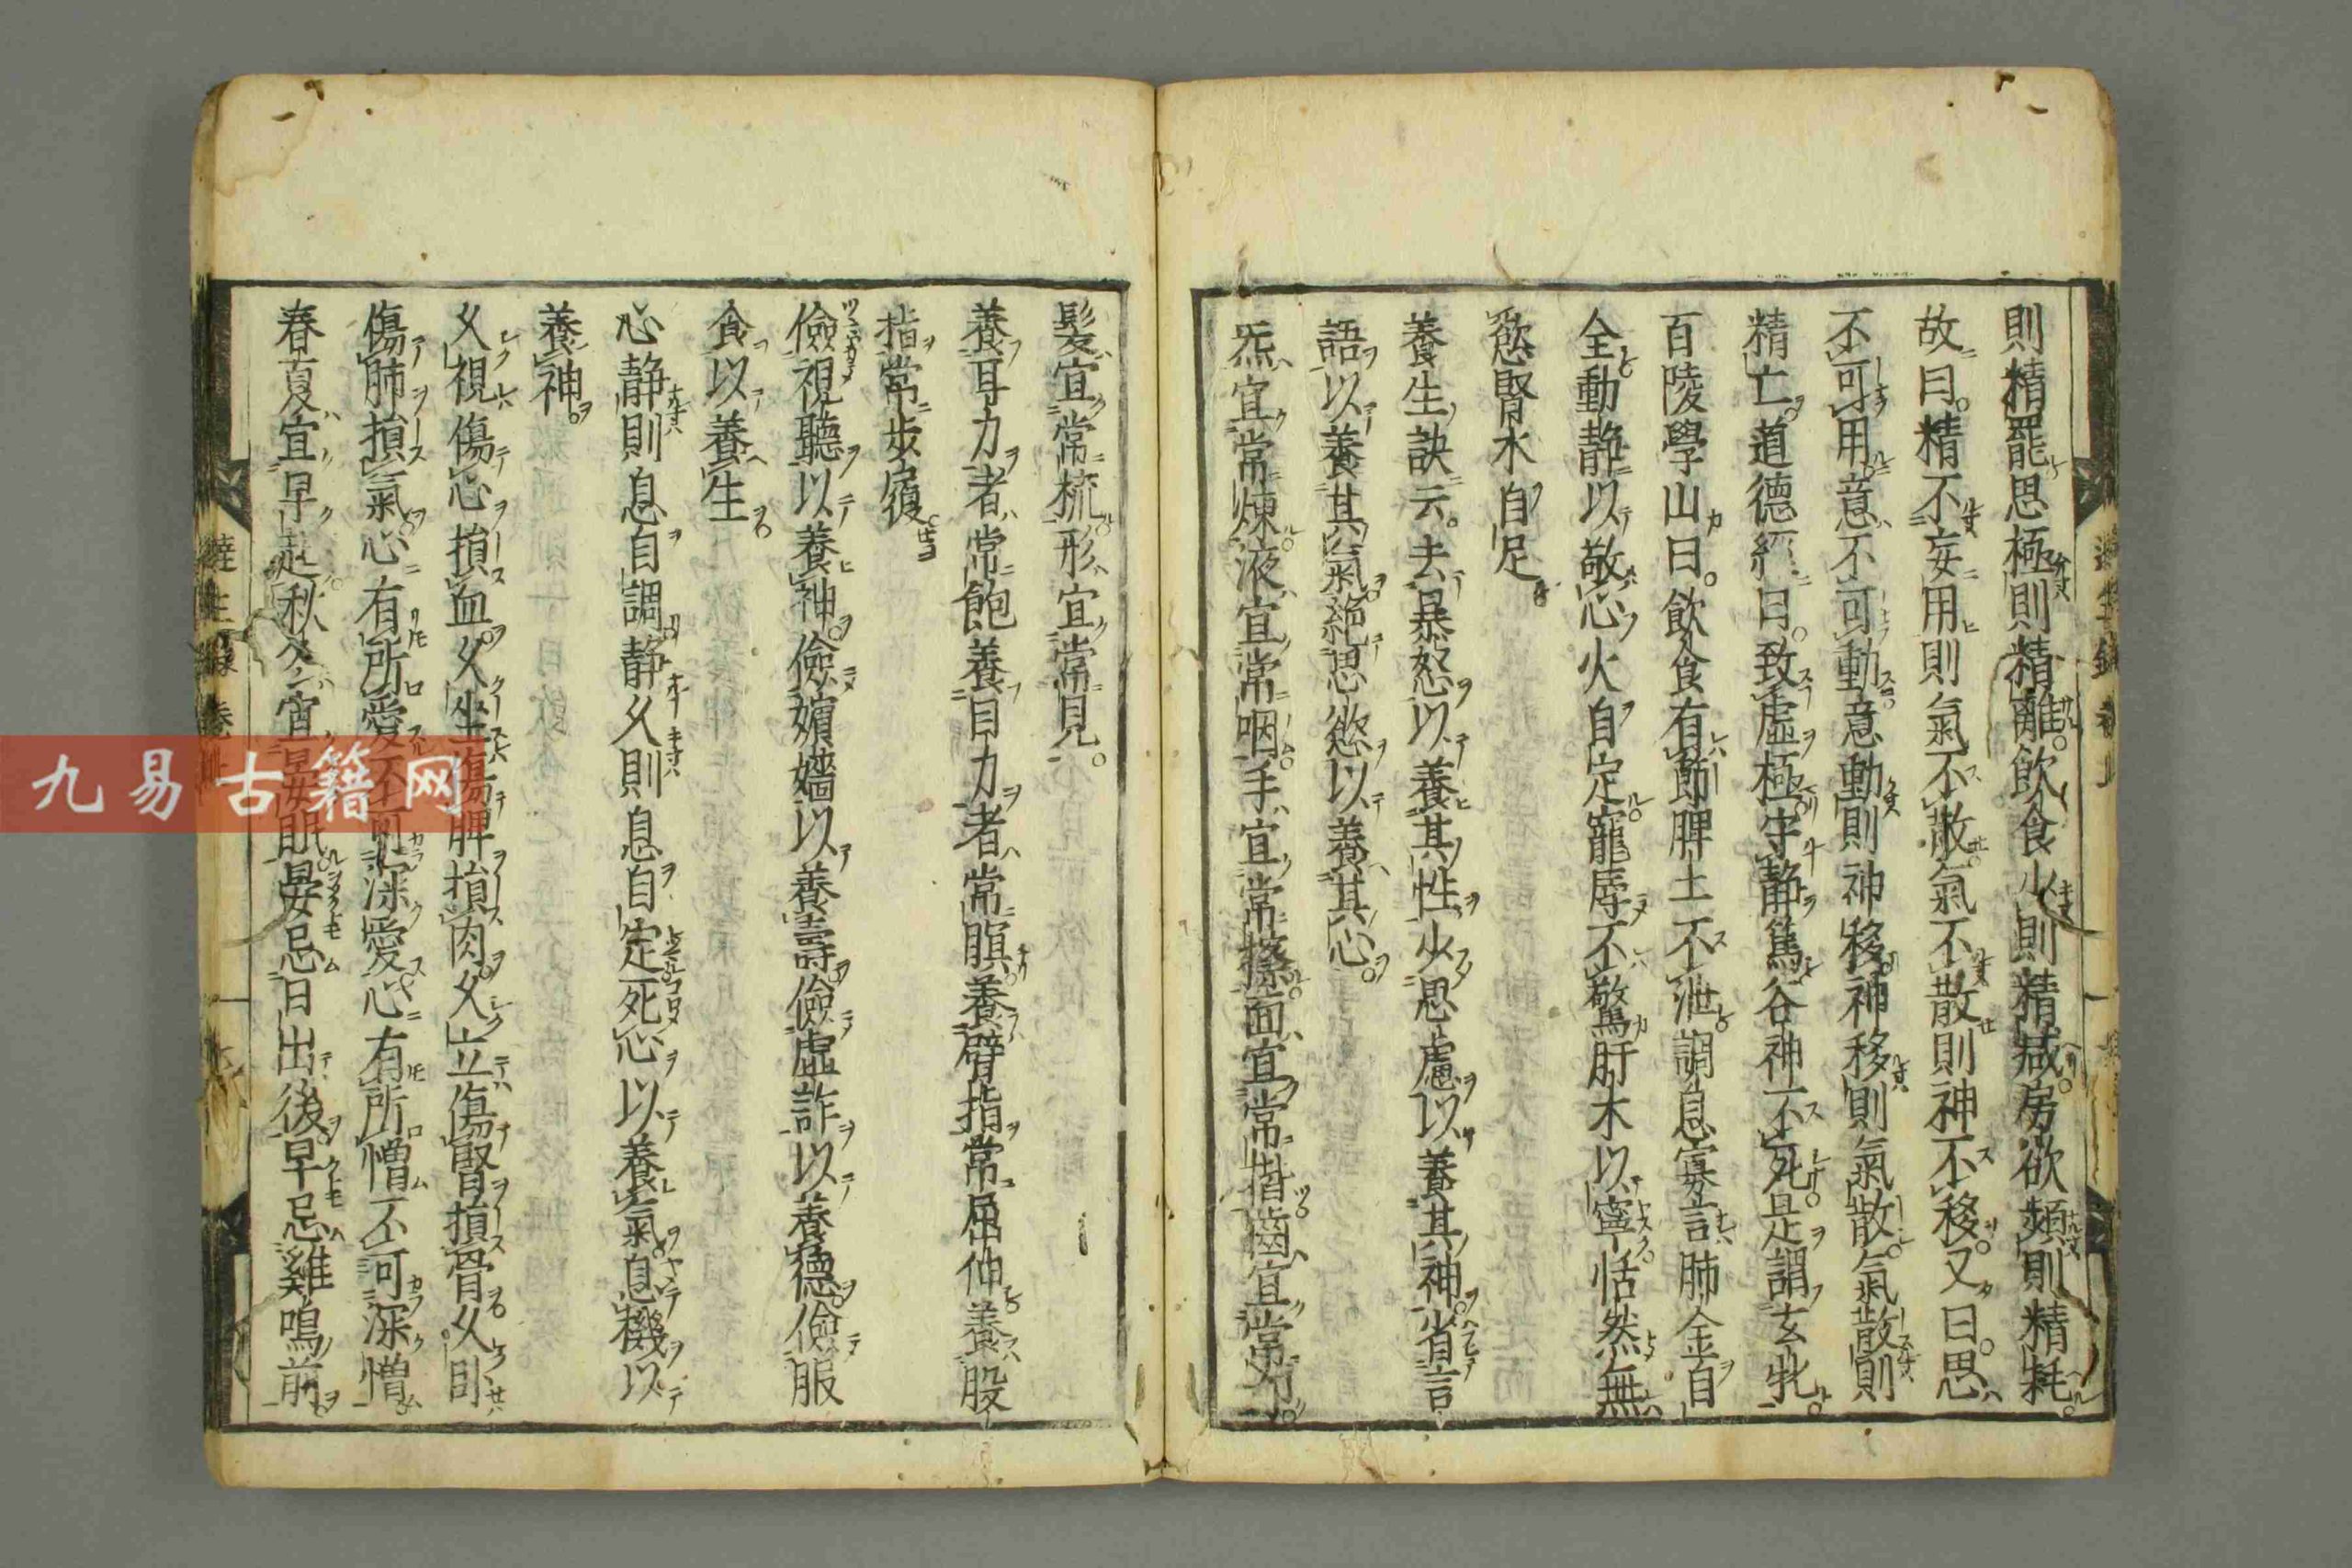 則精罷思極則精離飲食少則精減房欲頻則精耗
故曰精不妄用則氣不散氣不散則神不移又曰思
不可用意不可動意動則神移神移則氣散氣散則
精亡道德經曰致虛極守靜篤谷神不死是謂玄牝
百陵學山曰飲食有節脾土不泄調息寡言肺金自
全動靜以敬心火自定寵辱不驚肝木以寧恬然無
慾腎水自足
養生訣云去暴怒以養其性少思慮以養其神省言
語以養其氣絕思慾以養其心
炁宜常煉液宜常咽手宜常擦面宜常揩齒宜常叩
髮宜常梳形宜常見
養耳力者常飽養目力者常瞑養臂指常屈伸養股
指常步履
儉視聽以養神儉嬪嬙以養壽儉虛詐以養德儉服
食以養生
心静則息自調静久則息自定死心以養氣息機以
養神
久視傷心損血久坐傷脾損肉久立傷腎損骨久臥
傷肺損氣心有所愛不可深愛心有所憎不可深憎
春夏宜早起秋冬宜晏眠晏忌日出後早忌雞鳴前
九易古籍网